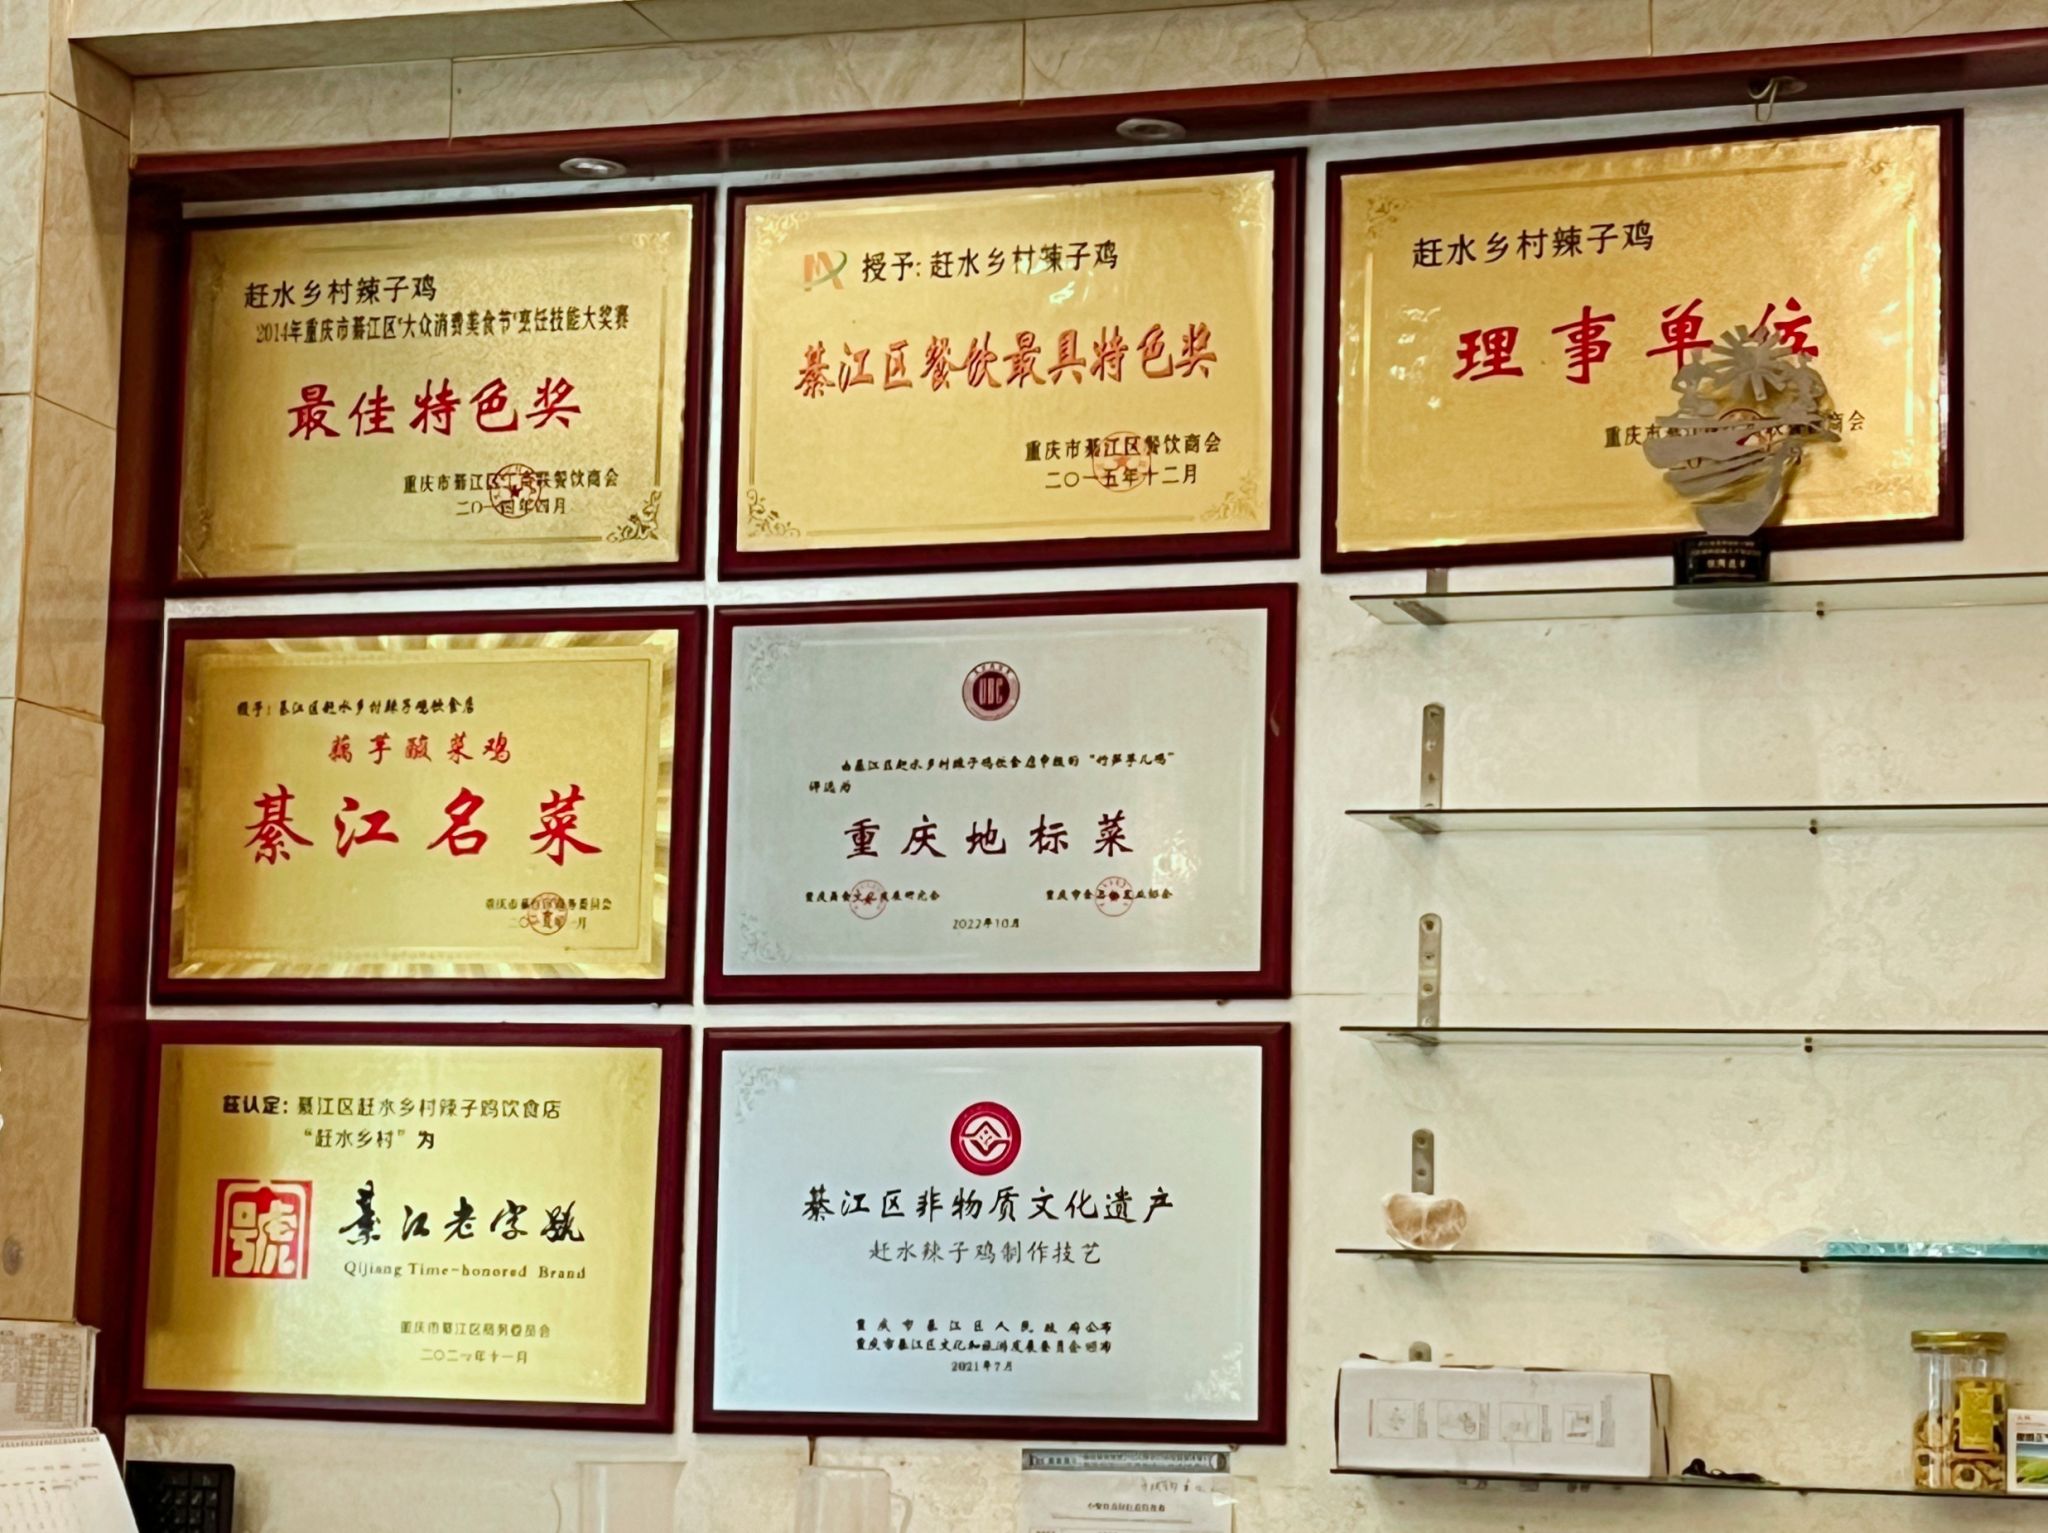 赶水乡村辣子鸡
2014年重庆市綦江区"大众消费美食节"烹饪技能大奖赛
最佳特色奖
重庆市綦江区工商联餐饮商会
二〇一四年四月
授予:赶水乡村辣子鸡
綦江区餐饮最具特色奖
重庆市綦江区餐饮商会
二〇一五年十二月
赶水乡村辣子鸡
理事单位
重庆市綦江区餐饮商会
授予:綦江区赶水乡村辣子鸡饮食店
藕芋酸菜鸡
綦江名菜
重庆市綦江区商务委员会
由綦江区赶水乡村辣子鸡饮食店申报的"竹笋芋儿鸡"
评选为
重庆地标菜
重庆商食文化发展研究会
重庆市食品工业协会
2022年10月
兹认定:綦江区赶水乡村辣子鸡饮食店
"赶水乡村"为
號
綦江老字號
Qijiang Time-honored Brand
重庆市綦江区商务委员会
二〇二一年十一月
綦江区非物质文化遗产
赶水辣子鸡制作技艺
重庆市綦江区人民政府公布
重庆市綦江区文化和旅游发展委员会颁布
2021年7月